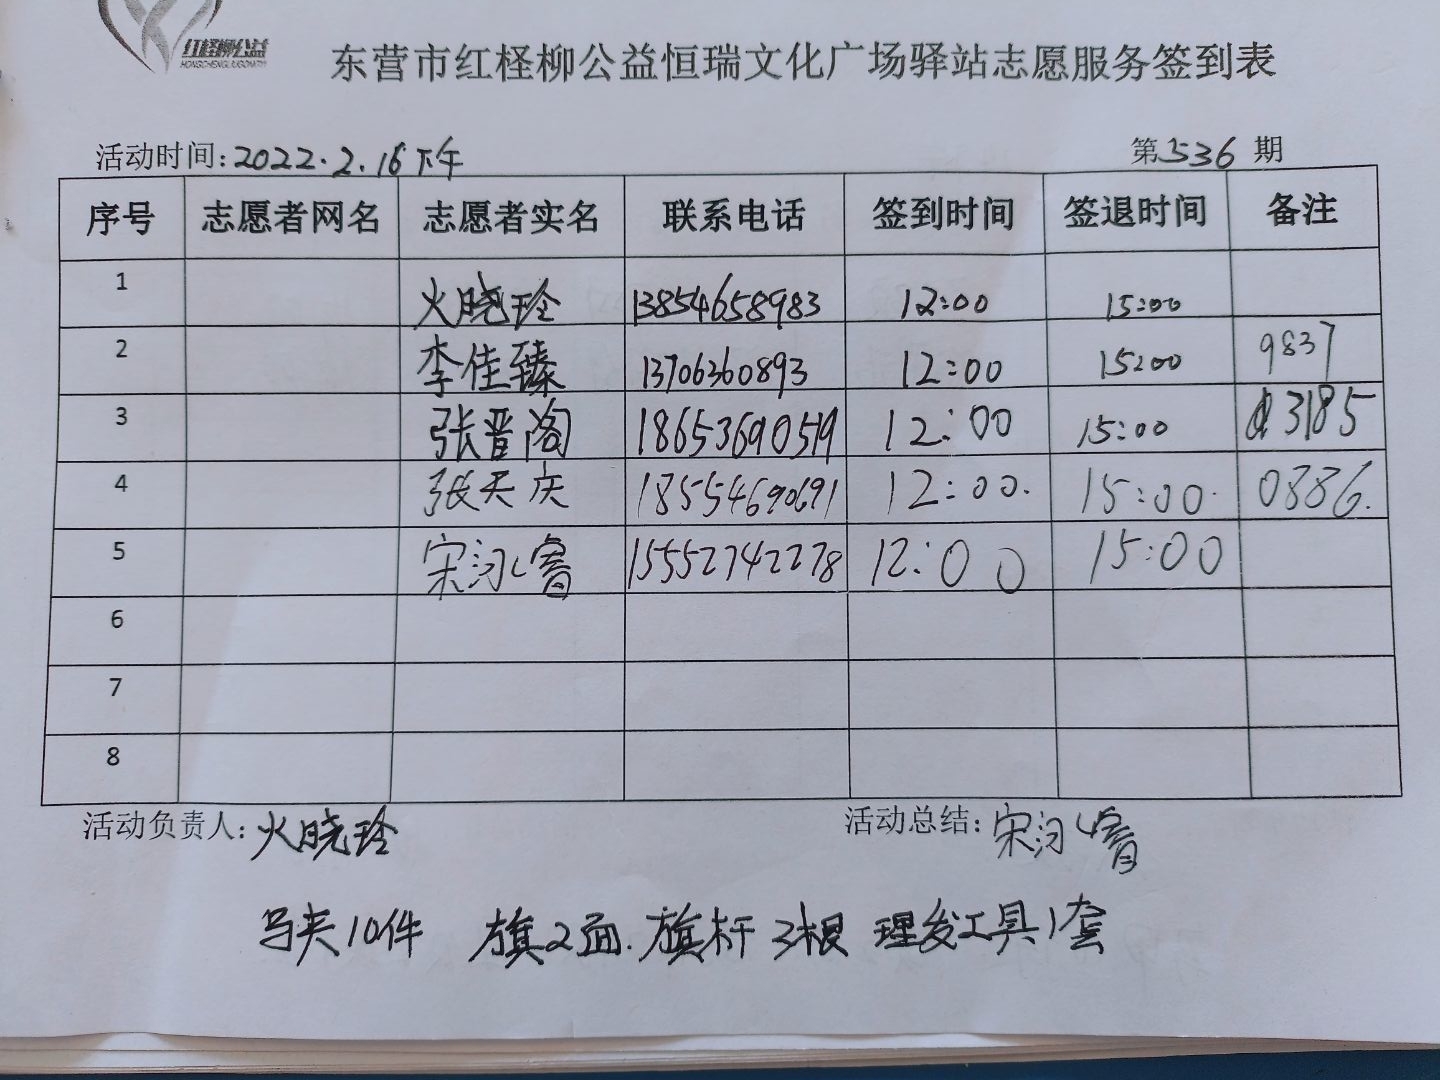 红柽柳公益
HONGCHENGLIUGONGYI
东营市红柽柳公益恒瑞文化广场驿站志愿服务签到表
活动时间:2022.2.16下午 第536期
序号 志愿者网名 志愿者实名 联系电话 签到时间 签退时间 备注
1 火晓玲 13854658983 12:00 15:00
2 李佳臻 13706360893 12:00 15:00 9837
3 张晋阁 18653690519 12:00 15:00 3185
4 张天庆 18554690691 12:00. 15:00. 0886.
5 宋汐睿 15552742278 12:00 15:00
6
7
8
活动负责人:火晓玲 活动总结:宋汐睿
马夹10件 旗2面.旗杆3根 理发工具1套